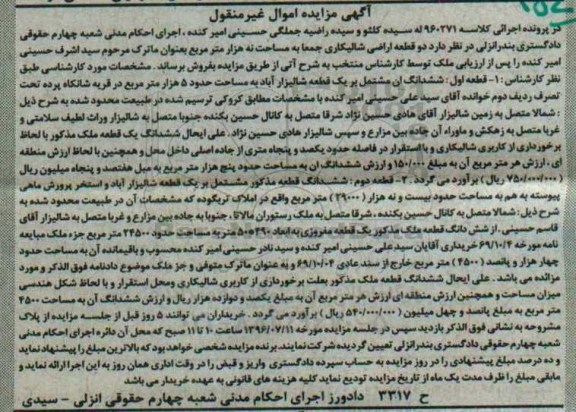 ۱۵۴
آگهی مزایده اموال غیرمنقول
در پرونده اجرائی کلاسه ۹۶۰۲۷۱ له سیده کلثو و سیده راضیه جملگی حسینی امیر کنده ، اجرای احکام مدنی شعبه چهارم حقوقی
دادگستری بندرانزلی در نظر دارد دو قطعه اراضی شالیکاری جمعا به مساحت نه هزار متر مربع بعنوان ماترک مرحوم سید اشرف حسینی
امیر کنده را پس از ارزیابی ملک توسط کارشناس منتخب به شرح آتی از طریق مزایده بفروش برساند . مشخصات مورد کارشناسی طبق
نظر کارشناس : ۱- قطعه اول : ششدانگ ان مشتمل بر یک قطعه شالیزار آباد به مساحت حدود ۵ هزار متر مربع در قریه اشانکاه پرده تحت
تصرف ردیف دوم خوانده آقای سید علی حسینی امیر کنده با مشخصات مطابق کروکی ترسیم شده در طبیعت محدود شده به شرح ذیل
: شمالا متصل به زمین شالیزار آقای هادی حسین نژاد شرقا متصل به کانال حسین بکنده جنوبا متصل به شالیزار وراث لطیف سلامتی و
غربا متصل به زهکش و ماوراء آن جاده بین مزارع و سپس شالیزار هادی حسین نژاد . علی ایحال ششدانگ یک قطعه ملک مذکور با لحاظ
برخورداری از کاربری شالیکاری و با استقرار در فاصله حدود یکصد و پنجاه متری از جاده اصلی داخل محل و همچنین با لحاظ ارزش منطقه
ای ، ارزش هر متر مربع آن به مبلغ ۱۵۰/۰۰۰ و ارزش ششدانگ ان به مساحت حدود پنج هزار متر مربع به مبل هفتصد و پنجاه میلیون ریال
(۷۵۰/۰۰۰/۰۰۰ ریال ) برآورد می گردد . ۲- قطعه دوم : ششدانگ قطعه مذکور مشتمل بر یک قطعه شالیزار آباد و استخر پرورش ماهی
پیوسته به هم به مساحت حدود بیست و نه هزار (۲۹۰۰۰ ) متر مربع واقع در املاک تربگوده که مشخصات آن در طبیعت محدود شده به
شرح ذیل : شمالا متصل به کانال حسین بکنده ، شرقا متصل به ملک رستوران مالاتا ، جنوبا به جاده بین مزارع و غربا متصل به شالیزار آقای
قاسم حسینی . از شش دانگ قطعه ملک مذکور یک قطعه مفروزی به ابعاد ۴۹۰*۵۰ متر به مساحت حدود ۲۴۵۰۰ متر مربع جزء ملک مبایعه
نامه مورخه ۶۹/۱۰/۴ خریداری آقایان سید علی حسینی امیر کنده و سید نادر حسینی امیر کنده محسوب و باقیمانده آن به مساحت حدود
چهار هزار و پانصد ( ۴۵۰۰ ) متر مربع خارج از سند عادی ۶۹/۱۰/۰۴ و به عنوان ماترک متوفی و جز ملک موضوع دادنامه فوق الذکر و مورد
مزائده می باشد . علی ایحال ششدانگ قطعه ملک مذکور بعلت برخورداری از کاربری شالیکاری ومحل استقرار و با لحاظ شکل هندسی
میزان مساحت و همچنین ارزش منطقه ای ارزش هر متر مربع آن به مبلغ یکصد و دوازده هزار ریال و ارزش ششدانگ آن به مساحت ۴۵۰۰
متر مربع به مبلغ پانصد و چهل میلیون ( ۵۴۰/۰۰۰/۰۰۰ ریال ) برآورد می گردد . خریداران می توانند ۵ روز قبل از جلسه مزایده از پلاک
مشروحه به نشانی فوق الذکر بازدید سپس در جلسه مزایده مورخه ۱۳۹۶/۰۷/۱۱ ساعت ۱۰ تا ۱۱ صبح که محل آن دائره اجرای احکام مدنی
شعبه چهارم حقوقی دادگستری بندرانزلی تعیین گردیده شرکت نمایند. برنده مزایده شخصی خواهد بود که بالاترین مبلغ را پیشنهاد نماید
و ده درصد مبلغ پیشنهادی را در روز مزایده به حساب سپرده دادگستری واریز و قبض را در وقت اداری همان روز به این اجرا ارائه نماید و
مابقی مبلغ را ظرف مدت یک ماه از تاریخ مزایده تودیع نماید کلیه هزینه های قانونی به عهده خریدار می باشد
ح ۳۳۱۷ دادورز اجرای احکام مدنی شعبه چهارم حقوقی انزلی - سیدی